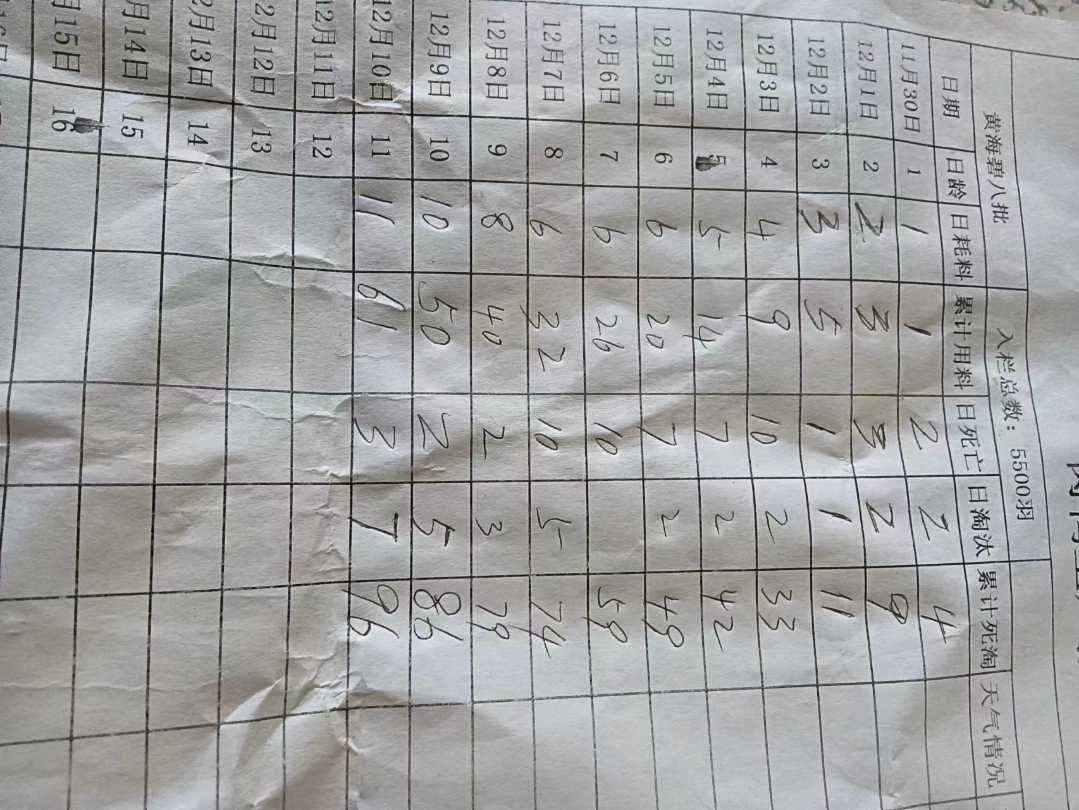 黄海碧八批 入栏总数：5500羽
日期 日龄 日耗料 累计用料 日死亡 日淘汰 累计死淘 天气情况
11月30日 1 1 1 2 2 4
12月1日 2 2 3 3 2 9
12月2日 3 3 5 1 1 11
12月3日 4 4 9 10 2 33
12月4日 5 5 14 7 2 42
12月5日 6 6 20 7 2 49
12月6日 7 6 26 10 59
12月7日 8 6 32 10 5 74
12月8日 9 8 40 2 3 79
12月9日 10 10 50 2 5 86
12月10日 11 11 61 3 7 96
12月11日 12
2月12日 13
2月13日 14
月14日 15
月15日 16